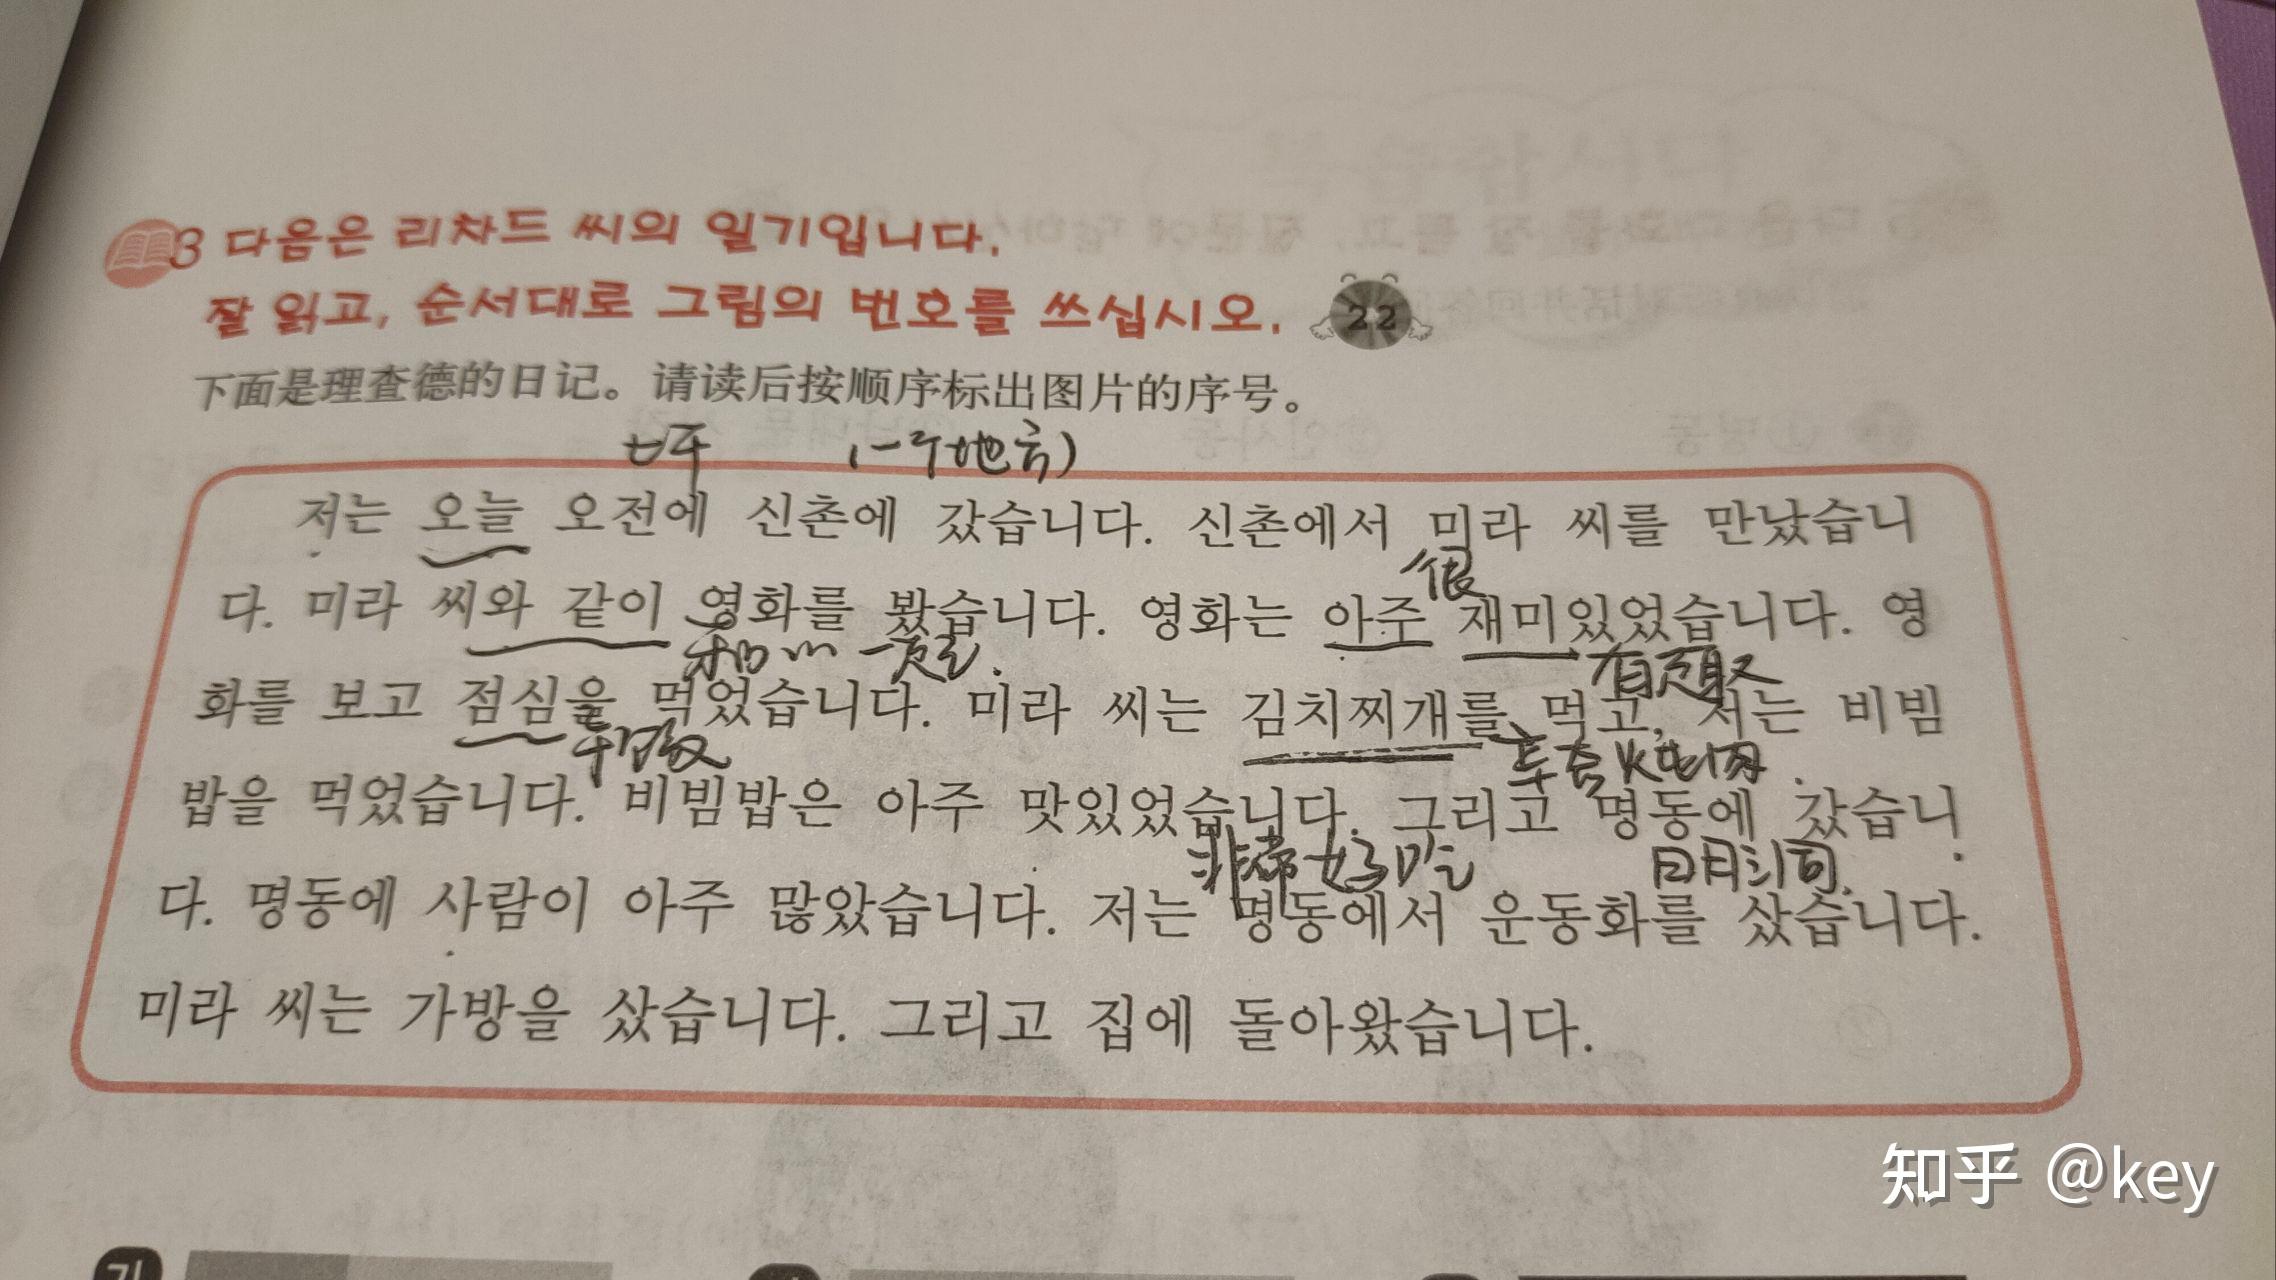 3 다음은 리차드 씨의 일기입니다.
잘 읽고, 순서대로 그림의 번호를 쓰십시오. 22
下面是理查德的日记。请读后按顺序标出图片的序号。
上午 (一个地方)
저는 오늘 오전에 신촌에 갔습니다. 신촌에서 미라 씨를 만났습니
很
다. 미라 씨와 같이 영화를 봤습니다. 영화는 아주 재미있었습니다. 영
和 一起. 有趣
화를 보고 점심을 먹었습니다. 미라 씨는 김치찌개를 먹고, 저는 비빔
午饭
밥을 먹었습니다. 비빔밥은 아주 맛있었습니다. 그리고 명동에 갔습니
非常好吃 明洞.
다. 명동에 사람이 아주 많았습니다. 저는 명동에서 운동화를 샀습니다.
미라 씨는 가방을 샀습니다. 그리고 집에 돌아왔습니다.
知乎 @key